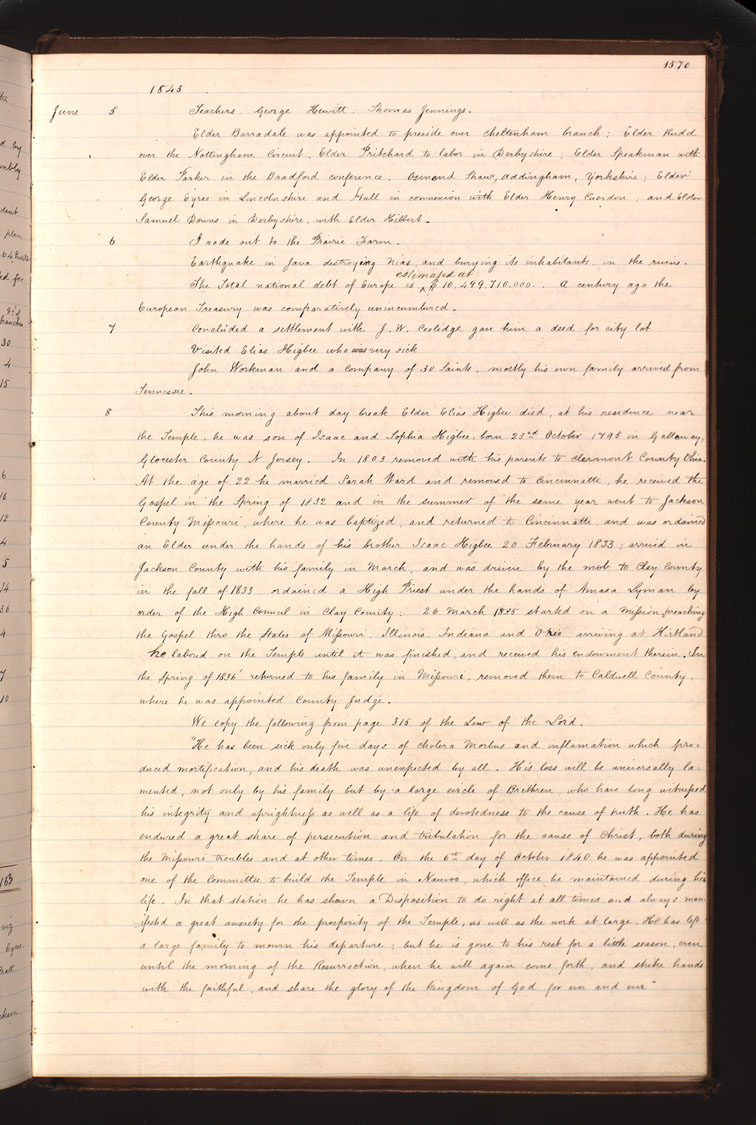 1570
1843
June 5 Teachers, George Hewitt, Thomas Jennings.
Elder Barradale was appointed to preside over Cheltenham branch; Elder Rudd
over the Nottingham Circuit, Elder Pritchard to labor in Derbyshire; Elder Speakman with
Elder Parker in the Bradford conference, Osmond Shaw, Addingham, Yorkshire; Elder
George Eyres in Lincolnshire and Hull in connexion with Elder Henry Cuerdon; and Elder
Samuel Downs in Derbyshire, with Elder Hibbert.
6 I rode out to the Prairie Farm.
Earthquake in Java destroying Nias, and burying its inhabitants in the ruins.
estimated at
The Total national debt of Europe is ^ £ 10,499,710,000. A century ago the
European Treasury was comparatively unincumbered.
7 Concluded a settlement with J. W. Coolidge gave him a deed for city lot
Visited Elias Higbee who was very sick
John Workman and a Company of 30 Saints, mostly his own family arrived from
Tennessee.
8 This morning about day break Elder Elias Higbee died, at his residence near
the Temple. he was son of Isaac and Sophia Higbee, born 23rd October 1795 in Galloway,
Glocester County N Jersey. In 1803 removed with his parents to Clermont County Ohio.
At the age of 22 he married Sarah Ward and removed to Cincinnatte, he received the
Gospel in the Spring of 1832 and in the summer of the same year went to Jackson
County Missouri, where he was baptized, and returned to Cincinnatte and was ordained
an Elder under the hands of his brother Isaac Higbee 20 February 1833; arrived in
Jackson County with his family in March, and was driven by the mob to Clay County
in the fall of 1833 ordained a High Priest under the hands of Amasa Lyman by
order of the High Council in Clay County. 26 March 1835 started on a Mission preaching
the Gospel thro the States of Missouri, Illinois, Indiana and Ohio arriving at Kirtland
he labored on the Temple until it was finished, and received his endowment therein. In
the Spring of 1836 returned to his family in Missouri, removed them to Caldwell County,
where he was appointed County Judge.
We copy the following from page 315 of the Law of the Lord.
"He has been sick only five days of cholera Morbus and inflamation which pro-
duced mortification, and his death was unexpected by all. His loss will be universally la-
mented, not only by his family but by a large circle of Brethren, who have long witnessed
his integrity and uprightness as well as a life of devotedness to the cause of truth. He has
endured a great share of persecution and tribulation for the cause of Christ, both during
the Missouri troubles and at other times. On the 6th day of October 1840 he was appointed
one of the Committee to build the Temple in Nauvoo, which office he maintained during his
life. In that station he has shown a Disposition to do right at all times, and always man-
ifested a great anxiety for the prosperity of the Temple, as well as the work at large. He has left
a large family to mourn his departure; but he is gone to his rest for a little season, even
until the morning of the Resurrection, when he will again come forth, and strike hands
with the faithful, and share the glory of the kingdom of God for ever and ever"